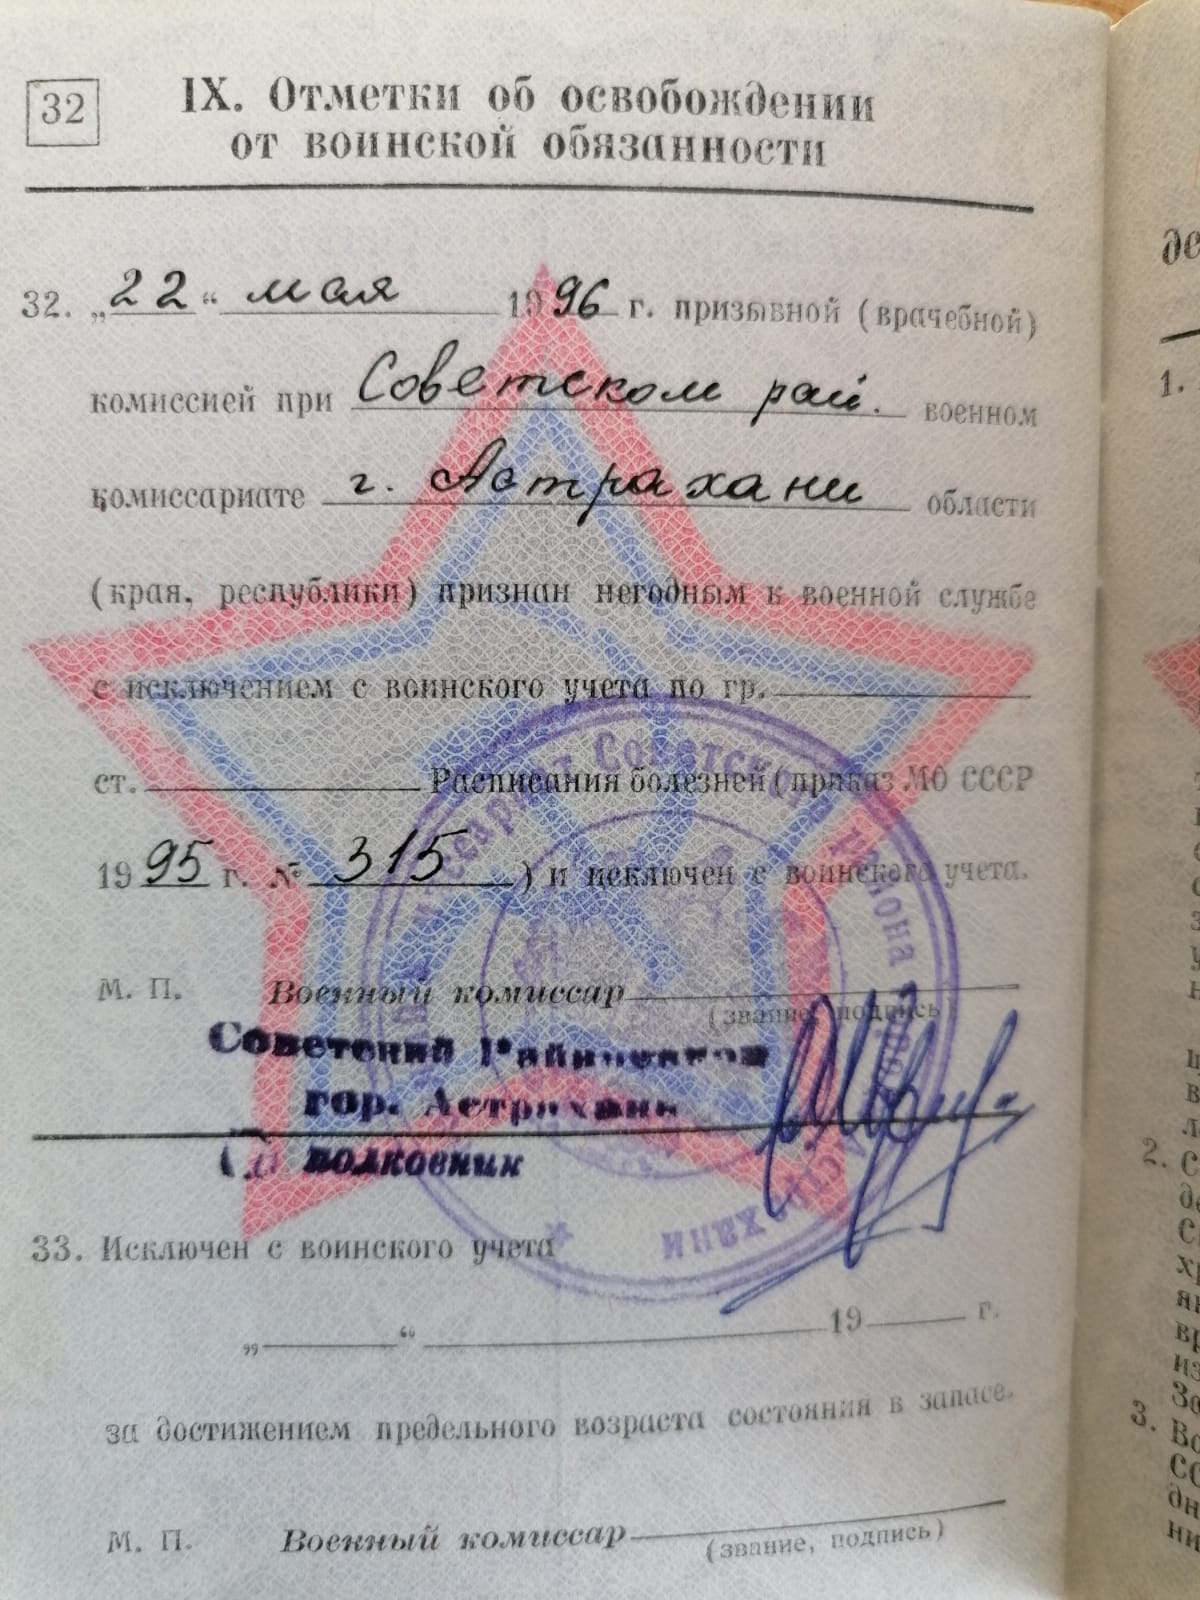 32
IX. Отметки об освобождении
от воинской обязанности
32. „22“ мая 1996 г. призывной (врачебной)
комиссией при Советском рай. военном
комиссариате г. Астрахани области
(края, республики) признан негодным к военной службе
с исключением с воинского учета по гр.
ст. Расписания болезней (приказ МО СССР
1995 г. № 315 ) и исключен с воинского учета.
М. П. Военный комиссар
(звание, подпись
Советский Райвоенком
гор. Астрахань
полковник
Советского района
Астрахани
33. Исключен с воинского учета
„ “ 19 г.
за достижением предельного возраста состояния в запасе.
М. П. Военный комиссар
(звание, подпись)
1.
2.
3.